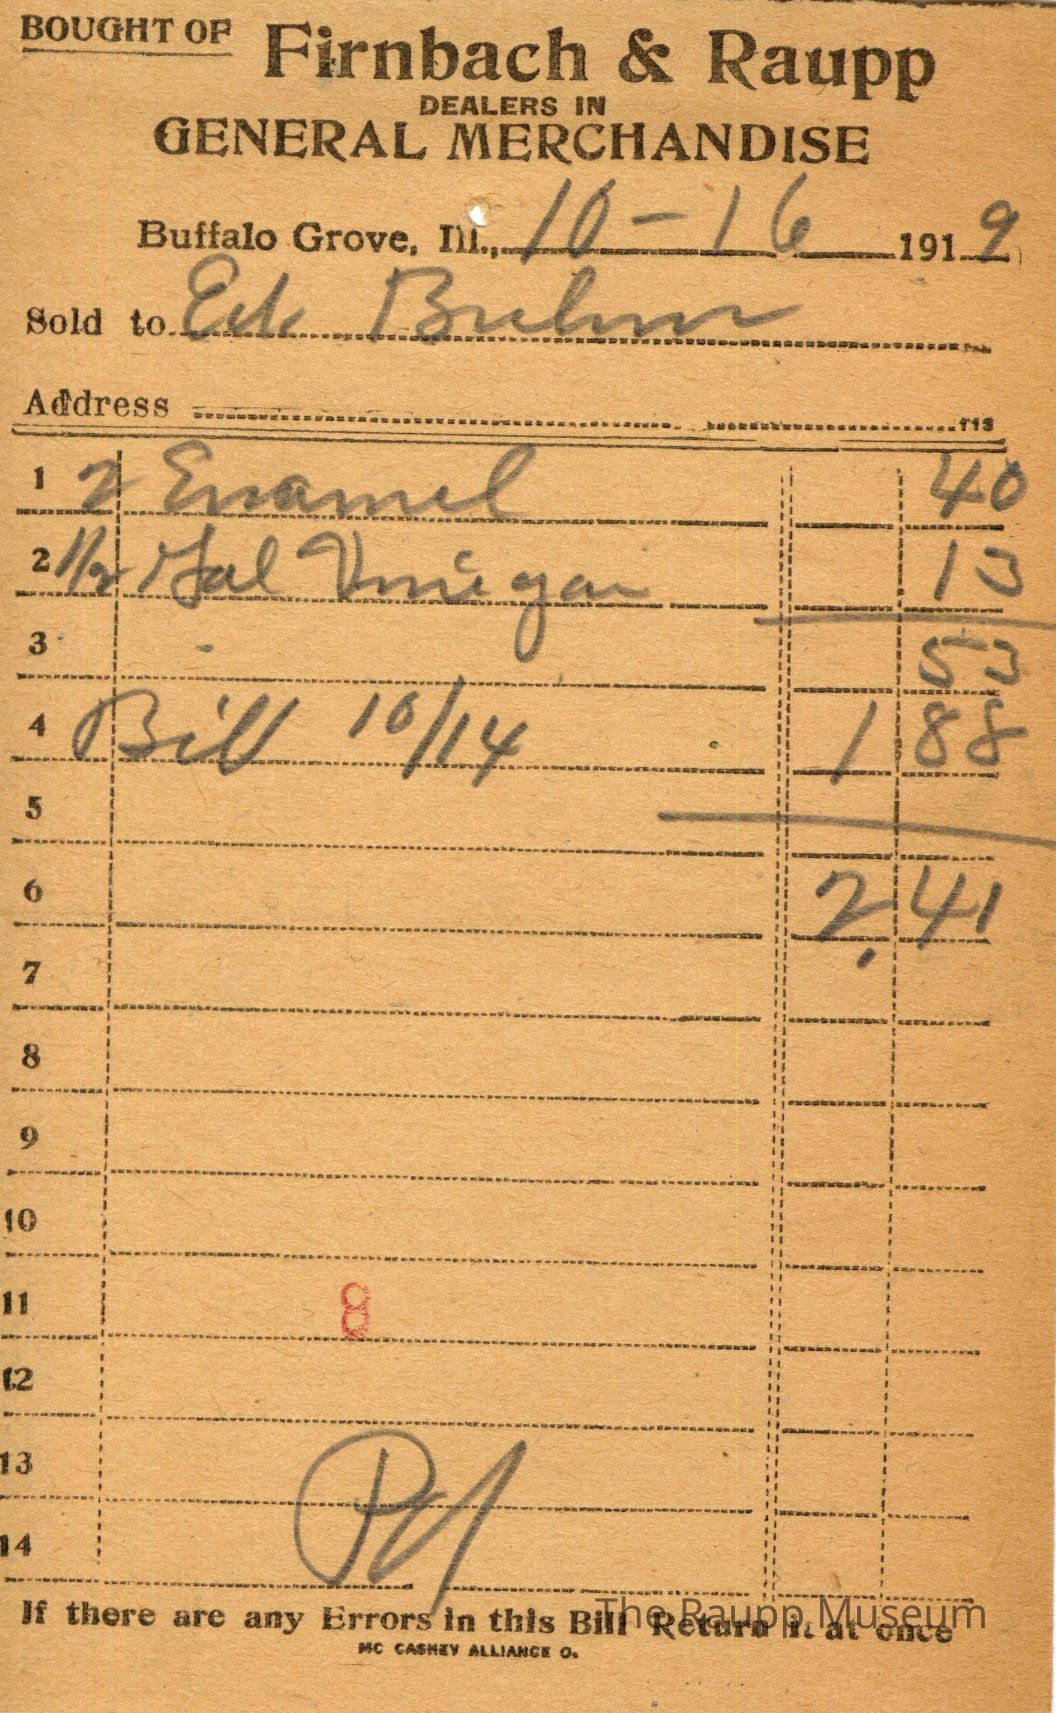 BOUGHT OF Firnbach & Raupp
DEALERS IN
GENERAL MERCHANDISE
Buffalo Grove, Ill., 10-16 1919
Sold to Ed
Address
113
1 2 Enamel 40
2 1/2 Gal Vinegar 13
3 53
4 Bill 10/14 1 88
5
6 2.41
7
8
9
10
11 8
12
13
14
Pd
If there are any Errors in this Bill Return it at once
The Raupp Museum
MC CASKEY ALLIANCE O.